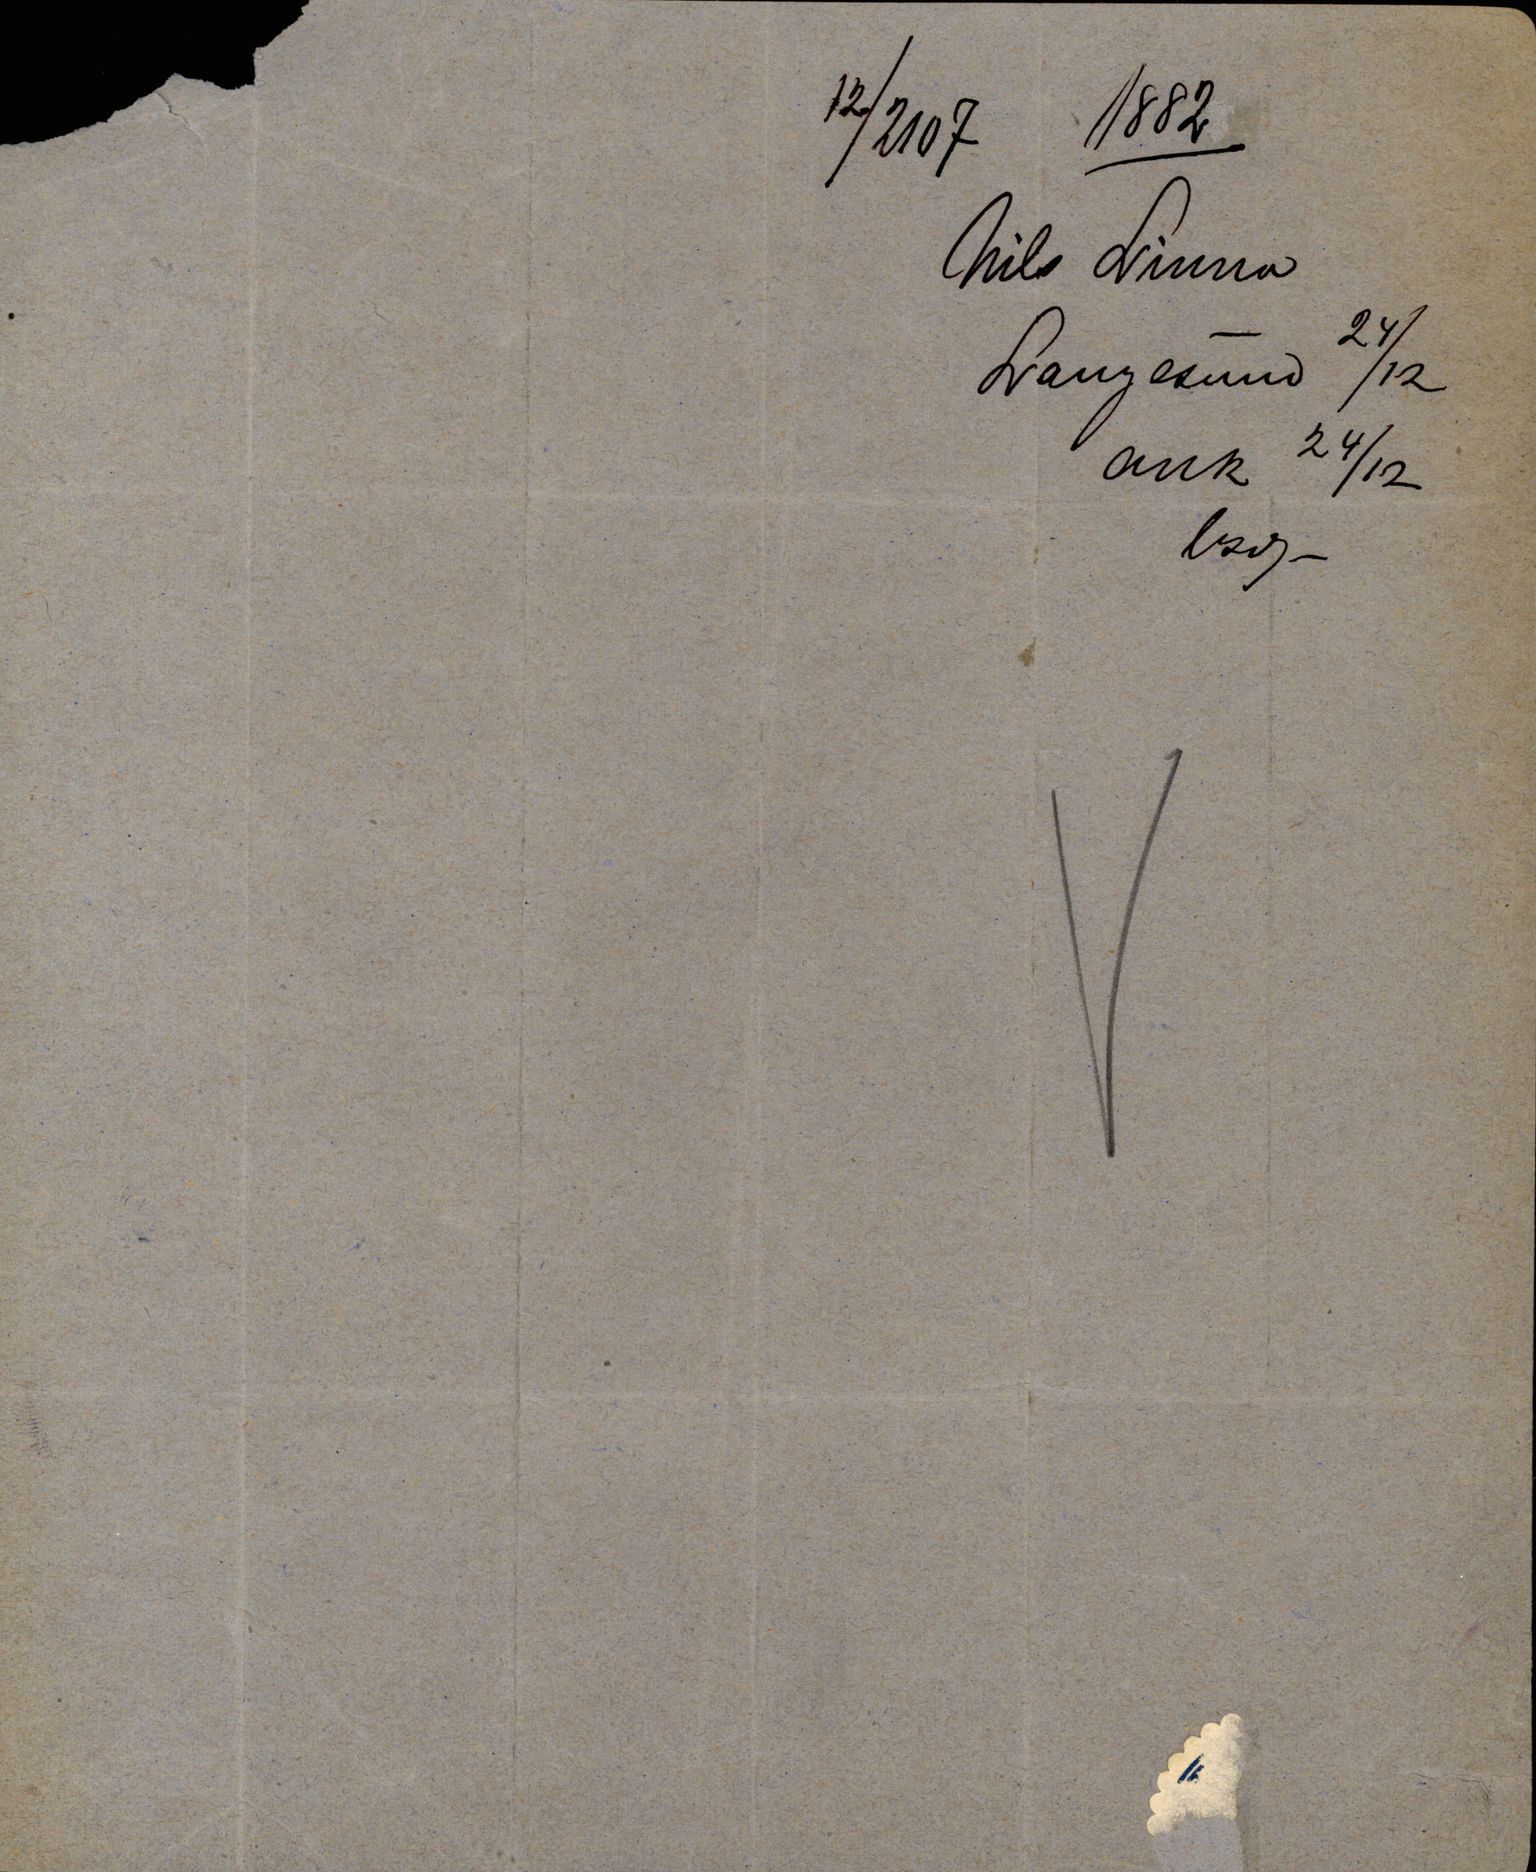 12/2107 1882
Nils Linna
Langesund 24/12
ank 24/12
besv